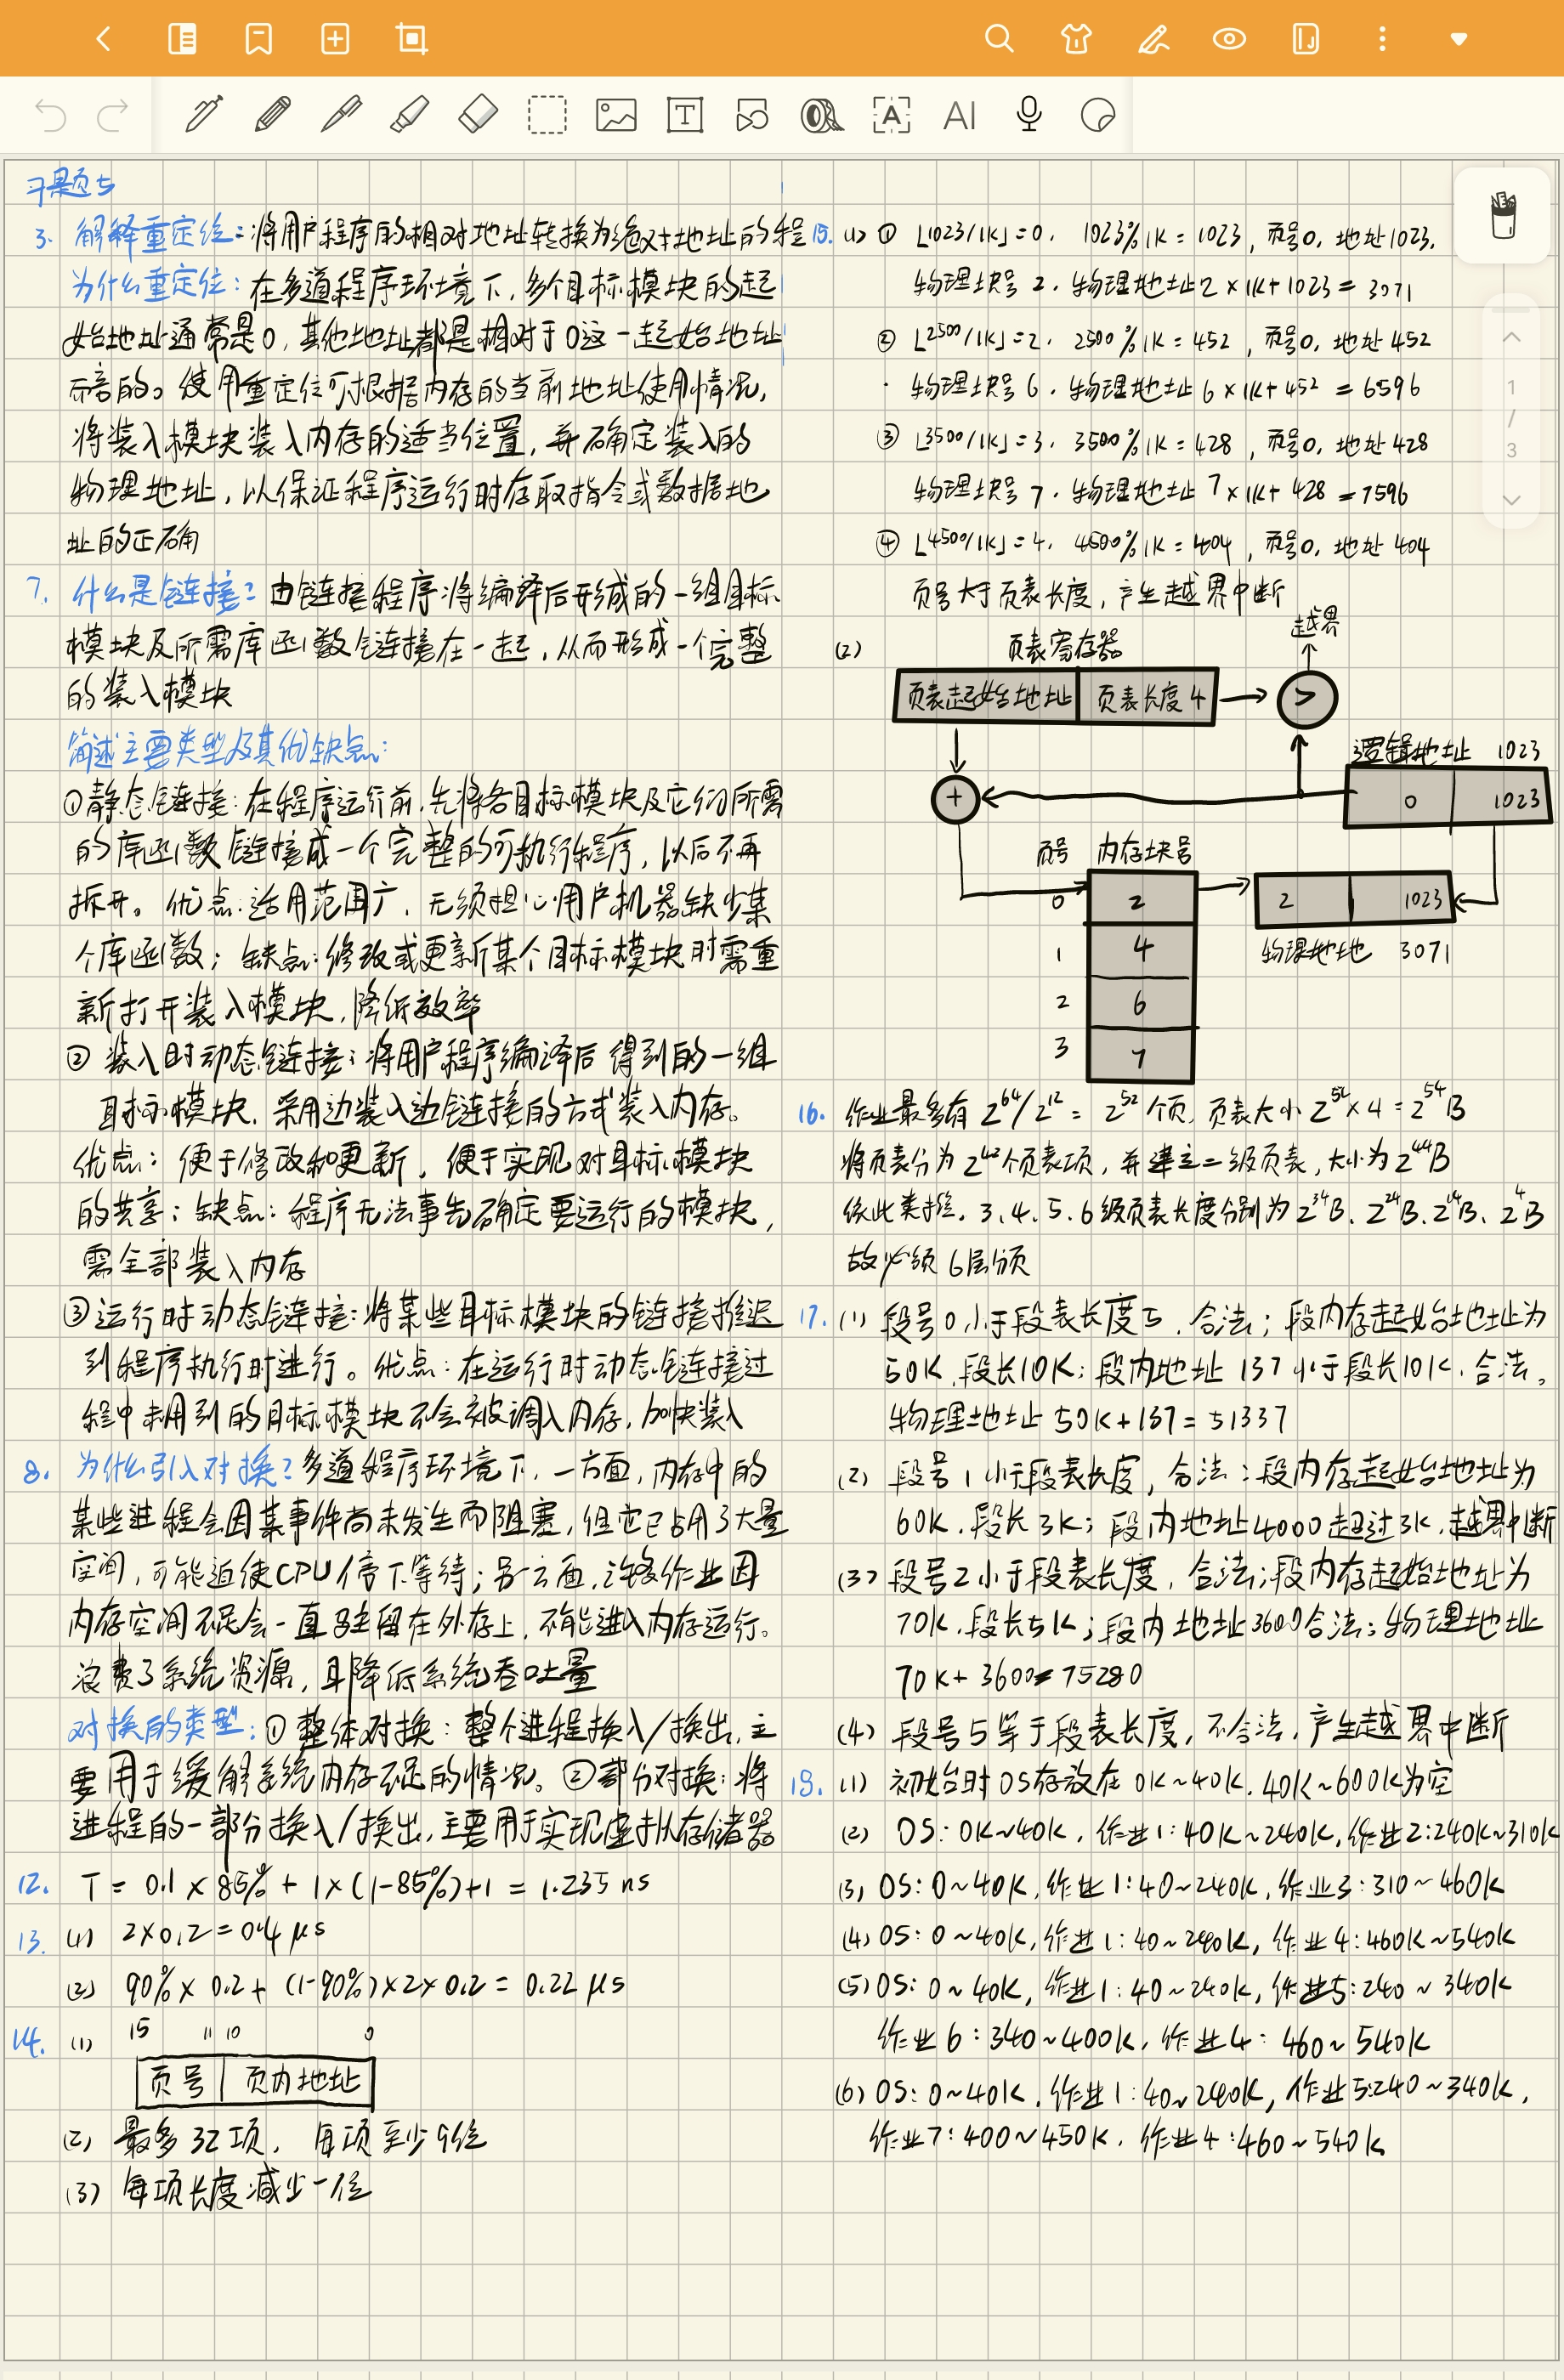 习题5
3. 解释重定位:将用户程序的相对地址转换为绝对地址的过程
为什么重定位:在多道程序环境下,多个目标模块的起
始地址通常是0,其他地址都是相对于0这一起始地址
而言的。使用重定位可根据内存的当前地址使用情况,
将装入模块装入内存的适当位置,并确定装入的
物理地址,以保证程序运行时存取指令或数据地
址的正确
7. 什么是链接?由链接程序将编译后形成的一组目标
模块及所需库函数链接在一起,从而形成一个完整
的装入模块
简述主要类型及其优缺点:
①静态链接:在程序运行前,先将各目标模块及它们所需
的库函数链接成一个完整的可执行程序,以后不再
拆开。优点:适用范围广,无须担心用户机器缺少某
个库函数;缺点:修改或更新某个目标模块时需重
新打开装入模块,降低效率
② 装入时动态链接:将用户程序编译后得到的一组
目标模块,采用边装入边链接的方式装入内存。
优点:便于修改和更新,便于实现对目标模块
的共享;缺点:程序无法事先确定要运行的模块,
需全部装入内存
③运行时动态链接:将某些目标模块的链接推迟
到程序执行时进行。优点:在运行时动态链接过
程中未用到的目标模块不会被调入内存,加快装入
8. 为什么引入对换?多道程序环境下,一方面,内存中的
某些进程会因某事件尚未发生而阻塞,但它已占用了大量
空间,可能迫使CPU停下等待;另一方面,许多作业因
内存空间不足会一直驻留在外存上,不能进入内存运行。
浪费了系统资源,且降低系统吞吐量
对换的类型:①整体对换:整个进程换入/换出,主
要用于缓解系统内存不足的情况。②部分对换:将
进程的一部分换入/换出,主要用于实现虚拟存储器
12. T = 0.1 × 85% + 1×(1-85%)+1 = 1.235 ns
13. (1) 2×0.2 = 0.4 μs
(2) 90% × 0.2 + (1-90%)×2×0.2 = 0.22 μs
14. (1) 15 11 10 0
页号 页内地址
(2) 最多32项, 每项至少9位
(3) 每项长度减少一位
15. (1) ① ⌊1023/1K⌋=0. 1023%1K = 1023, 页号0, 地址1023.
物理块号 2. 物理地址2×1K+1023 = 3071
② ⌊2500/1K⌋=2. 2500%1K = 452, 页号0, 地址452
物理块号 6. 物理地址 6×1K+452 = 6596
③ ⌊3500/1K⌋=3. 3500%1K = 428, 页号0, 地址428
物理块号 7. 物理地址 7×1K+428 = 7596
④ ⌊4500/1K⌋=4. 4500%1K = 404, 页号0, 地址404
页号大于页表长度,产生越界中断
越界
(2) 页表寄存器
页表起始地址 页表长度4 >
逻辑地址 1023
+ 0 1023
页号 内存块号
0 2 2 1023
1 4 物理地地 3071
2 6
3 7
16. 作业最多有 2^64/2^12 = 2^52 个页, 页表大小 2^52×4 = 2^54B
将页表分为 2^42个页表项,并建立二级页表,大小为2^44B
依此类推,3、4、5、6级页表长度分别为2^34B、2^24B、2^14B、2^4B
故必须6层分页
17. (1) 段号0小于段表长度5,合法;段内存起始地址为
50K,段长10K;段内地址 137小于段长10K,合法。
物理地址 50K+137 = 51337
(2) 段号1小于段表长度,合法;段内存起始地址为
60K,段长3K;段内地址4000超过3K,越界中断
(3) 段号2小于段表长度,合法;段内存起始地址为
70K,段长5K;段内地址3600合法;物理地址
70K+3600=75280
(4) 段号5等于段表长度,不合法,产生越界中断
18. (1) 初始时OS存放在 0K~40K. 40K~600K为空
(2) OS:0K~40K,作业1:40K~240K,作业2:240K~310K
(3) OS:0~40K,作业1:40~240K,作业3:310~460K
(4) OS:0~40K,作业1:40~240K,作业4:460K~540K
(5) OS:0~40K,作业1:40~240K,作业5:240~340K
作业6:340~400K,作业4:460~540K
(6) OS:0~40K,作业1:40~240K,作业5:240~340K,
作业7:400~450K,作业4:460~540K
AI
1
/
3